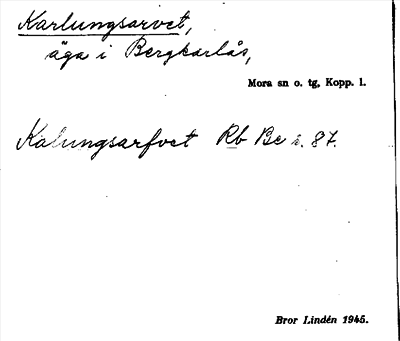 Karlungsarvet,
äga i Bergkarlås,
Mora sn o. tg, Kopp. l.
Kalungsarfvet Rb Bc s. 87.
Bror Lindén 1945.